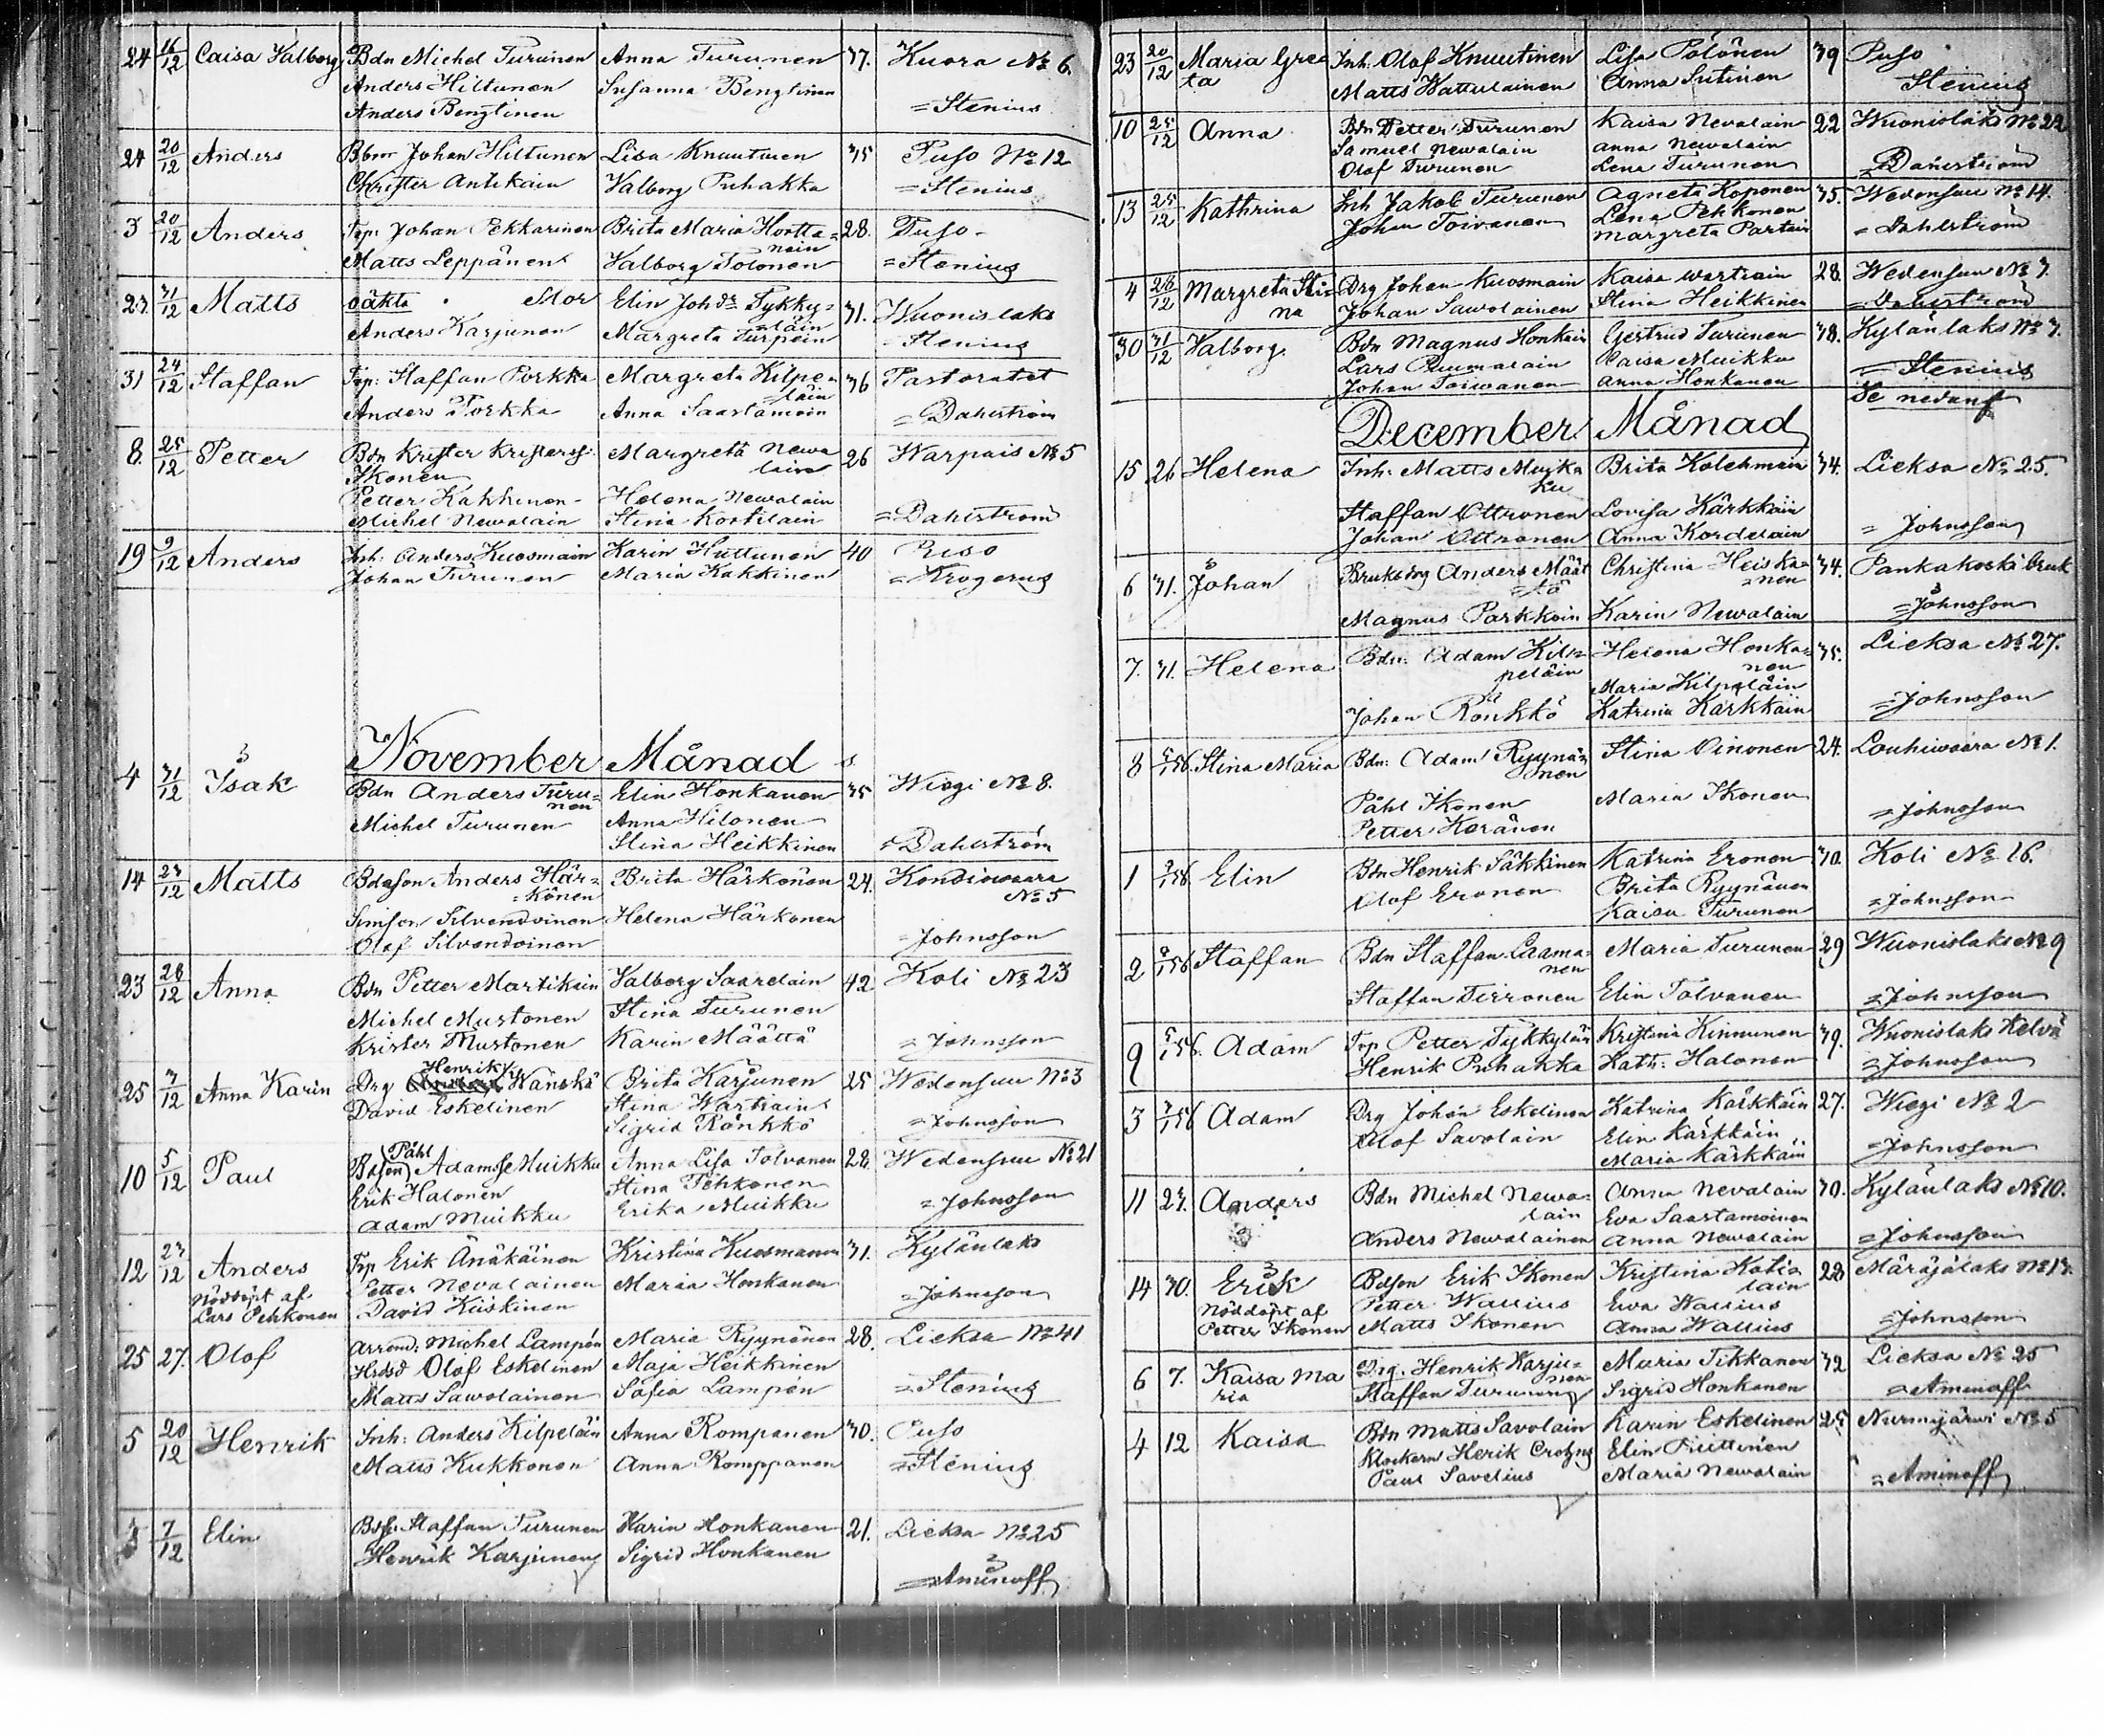 24 16/12 Caisa Valborg Bdn Michel Turunen Anna Turunen 37. Kuora No 6.
Anders Hiltunen Susanna Bengtinen
Anders Bengtinen = Stenius
24 20/12 Anders Bbm Johan Hiltunen Lisa Knuutinen 35 Puso No 12
Christer Antikain Valborg Puhakka = Stenius
3 20/12 Anders Torp: Johan Pekkarinen Brita Maria Hortta= 28. Puso
nain
Matts Leppänen Valborg Tolonen = Stenius
23. 31/12 Matts oäkta Mor Elin Joh dr Tykky= 31. Wuonislaks
läin
Anders Karjunen Margreta Turpein = Stenius
31 24/12 Staffan Trp: Staffan Porkka Margreta Kilpe= 36 Pastoratet
läin
Anders Porkka Anna Saastamoin = Dahlström
8. 25/12 Petter Bdn Krister Kristerss: Margreta Newa 26 Warpais No 5
Ikonen lain
Petter Kakkinen Helena Newalain
Michel Newalain Stina Kortelain = Dahlström
19 9/12 Anders Inh: Anders Kuosmain Karin Huttunen 40 Reso
Johan Turunen Maria Kakkinen = Krogerus
November Månad
4 31/12 Isak Bdn Anders Turu= Elin Honkanen 35 Wiegi No 8.
nen
Michel Turunen Anna Hilonen
Stina Heikkinen = Dahlström
14 23/12 Matts Bdeson Anders Här= Brita Härkönen 24. Kondiowaara
könen No 5
Simson Silvendoinen Helena Härkönen
Olof Silvendoinen = Johnsson
23 28/12 Anna Bdn Petter Martikain Valborg Saarelain 42 Koli No 23
Michel Mustonen Stina Turunen
Krister Mustonen Karin Määttä = Johnsson
Henrik
25 3/12 Anna Karin Drg Wänskä Brita Karjunen 25 Wedensuu No 3
David Eskelinen Stina Wartiain
Sigrid Rönkkö = Johnsson
Påhl
10 5/12 Paul Bdson Adamss Muikku Anna Lisa Tolvanen 28. Wedensuu No 21
Erik Halonen Stina Pehkonen
Adam Muikku Erika Muikku = Johnsson
12 23/12 Anders Trp Erik Änäkäinen Kristina Kuosmanen 31. Kylänlaks
Nöddöpt af Petter Nevalainen Maria Honkanen
Lars Pehkonen David Kiiskinen = Johnsson
25 27. Olof Arrend: Michel Lampén Maria Ryynänen 28. Lieksa No 41
Hrdsd Olof Eskelinen Maja Heikkinen
Matts Sawolainen Sofia Lampén = Stenius
5 20/12 Henrik Inh: Anders Kilpeläin Anna Rompanen 30. Puso
Matts Kukkonen Anna Romppanen = Stenius
7/12 Elin Bdsn Staffan Turunen Karin Honkanen 21. Lieksa No 25
Henrik Karjunen Sigrid Honkanen
= Aminoff
23 20/12 Maria Gree Inh. Olof Knuutinen Lisa Polönen 39 Puso
ta Matts Hattulainen Anna Sutinen Stenius
10 25/12 Anna Bdn Petter Turunen Kaisa Nevalain 22 Wuonislaks No 22
Samuel Newalain Anna Newalain
Olof Turunen Lena Turunen = Dahlström
13 25/12 Kathrina Inh Jakob Turunen Agneta Koponen 35. Wedensuu No 14.
Johan Toivanen Lena Pehkonen
Margreta Partain = Dahlström
4 26/12 Margreta Sti= Drg Johan Kuosmain Kaisa Wartiain 28. Wedensuu No 7.
na Johan Sawolainen Stina Heikkinen = Dahlström
30 31/12 Valborg. Bdn Magnus Honkain Gertrud Turunen 38. Kylänlaks No 7.
Lars Puumalain Kaisa Muikku
Johan Toiwanen Anna Honkanen = Stenius
Se nedanf
December Månad
15 26 Helena Inh: Matts Muika Brita Kolehmain 34. Lieksa No 25.
ku
Staffan Ottronen Lovisa Kärkkäin
Johan Ottronen Anna Kordelain = Johnsson
6 31. Johan Bruksdrg Anders Määt Christina Heiska= 34. Pankakoski bruk
=tä =nen
Magnus Parkkoin Karin Newalain = Johnsson
7. 31. Helena Bdn: Adam Kil= Helena Honka= 35. Lieksa No 27.
peläin nen
Maria Kilpeläin
Johan Rönkkö Katrina Kärkkäin = Johnsson
8 5/1 56. Stina Maria Bdn: Adam Ryynä= Stina Oinonen 24. Louhiwaara No 1.
nen
Påhl Ikonen Maria Ikonen
Petter Keränen = Johnsson
1 Elin Bdn Henrik Säkkinen Katrina Eronen 30. Koli No 16.
Olof Eronen Brita Ryynänen
Kaisa Turunen = Johnsson
2 Staffan Bdn Staffan Laama= Maria Turunen 29 Wuonislaks No 9
nen
Staffan Tirronen Elin Tolvanen = Johnsson
9 5/1 56. Adam Trp Petter Tykkyläin Kristina Kinnunen 39. Wuonislaks Kelvä
Henrik Puhakka Kath: Halonen = Johnsson
3 Adam Drg Johan Eskelinen Katrina Kärkkäin 27. Wiegi No 2
Olof Savolain Elin Kärkkäin
Maria Kärkkäin = Johnsson
11 27. Anders Bdn Michel Newa= Anna Nevalain 30. Kylänlaks No 10.
lain Eva Saastamoinen
Anders Newalainen Anna Newalain = Johnsson
14 30. Erik Bdson Erik Ikonen Kristina Kotis 28
lain
Nöddöpt af Petter Wallius Ewa Wallius
Petter Ikonen Matts Ikonen Anna Wallius = Johnsson
6 7. Kaisa Ma Drg. Henrik Karju= Maria Tikkanen 32 Lieksa No 25
ria nen
Staffan Turunen Sigrid Honkanen = Aminoff
4 12 Kaisa Bdn Matts Savolain Karin Eskelinen 25 Nurmijärwi No 5
Klockern Herik Elin Piittinen
Paul Savelius Maria Newalain = Aminoff